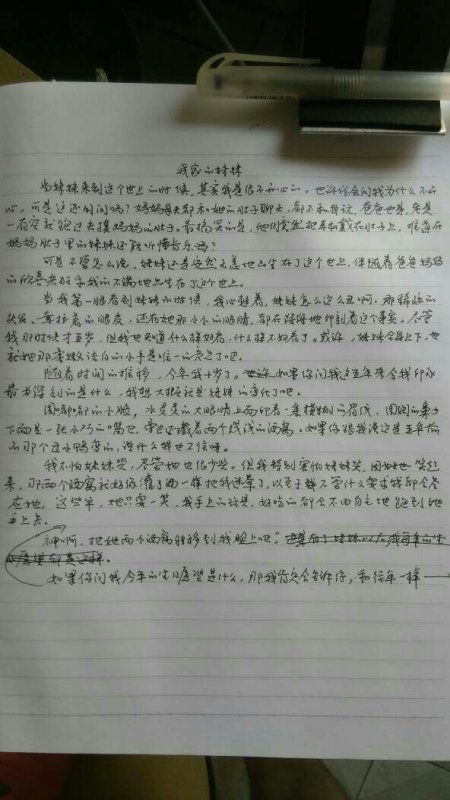 我家的妹妹
当妹妹来到这个世上的时候，其实我是很不开心的。也许你会问我为什么不开
心，可是这还用问吗？妈妈每天都和她的肚子聊天，都不和我说，爸爸也是，总是
一有空就跑过去摸妈妈的肚子。最搞笑的是，他们竟然把耳机戴在肚子上，难道在
妈妈肚子里的妹妹还能听懂音乐吗？
可是不管怎么说，妹妹还是安然无恙地出生在了这个世上，伴随着爸爸妈妈
的欣喜和我的不满地出生在了这个世上。
当我第一眼看到妹妹的时候，我心想着，妹妹怎么这么丑啊，那稀疏的
头发、耷拉着的眼皮，还有她那小小的眼睛，都在深深地印刻着这个事实。尽管
我那时候才五岁，但我也知道什么样好看，什么样不好看了。或许，妹妹全身上下，也
就她那李嫩洁白的小手是唯一的亮点了吧。
随着时间的推移，今年我十岁了。如果你问我这五年来令我印象
最为深刻的是什么，我想大概就是妹妹的变化了吧。
圆嘟嘟的小脸，水灵灵的大眼睛上面印着一条 的眉线，圆圆的鼻子
下面是一张小巧的嘴巴，旁边还藏着两个浅浅的酒窝。如果你跟我说这是五年前
的那个丑小鸭变的，说什么我也不信呀。
我不怕妹妹哭，尽管她也很少哭。但我特别害怕妹妹笑，因为她一笑起
来，那两个酒窝就好似灌了酒一样把我迷晕了，以至于无论什么要求我都会答
应她，这些年，她只要一笑，我手上的玩具，好吃的都会不由自主地跑到她
手上去。
神啊，把她两个酒窝转移到我脸上吧！
如果你问我今年的生日愿望是什么，那我肯定会告诉你，和往年一样——